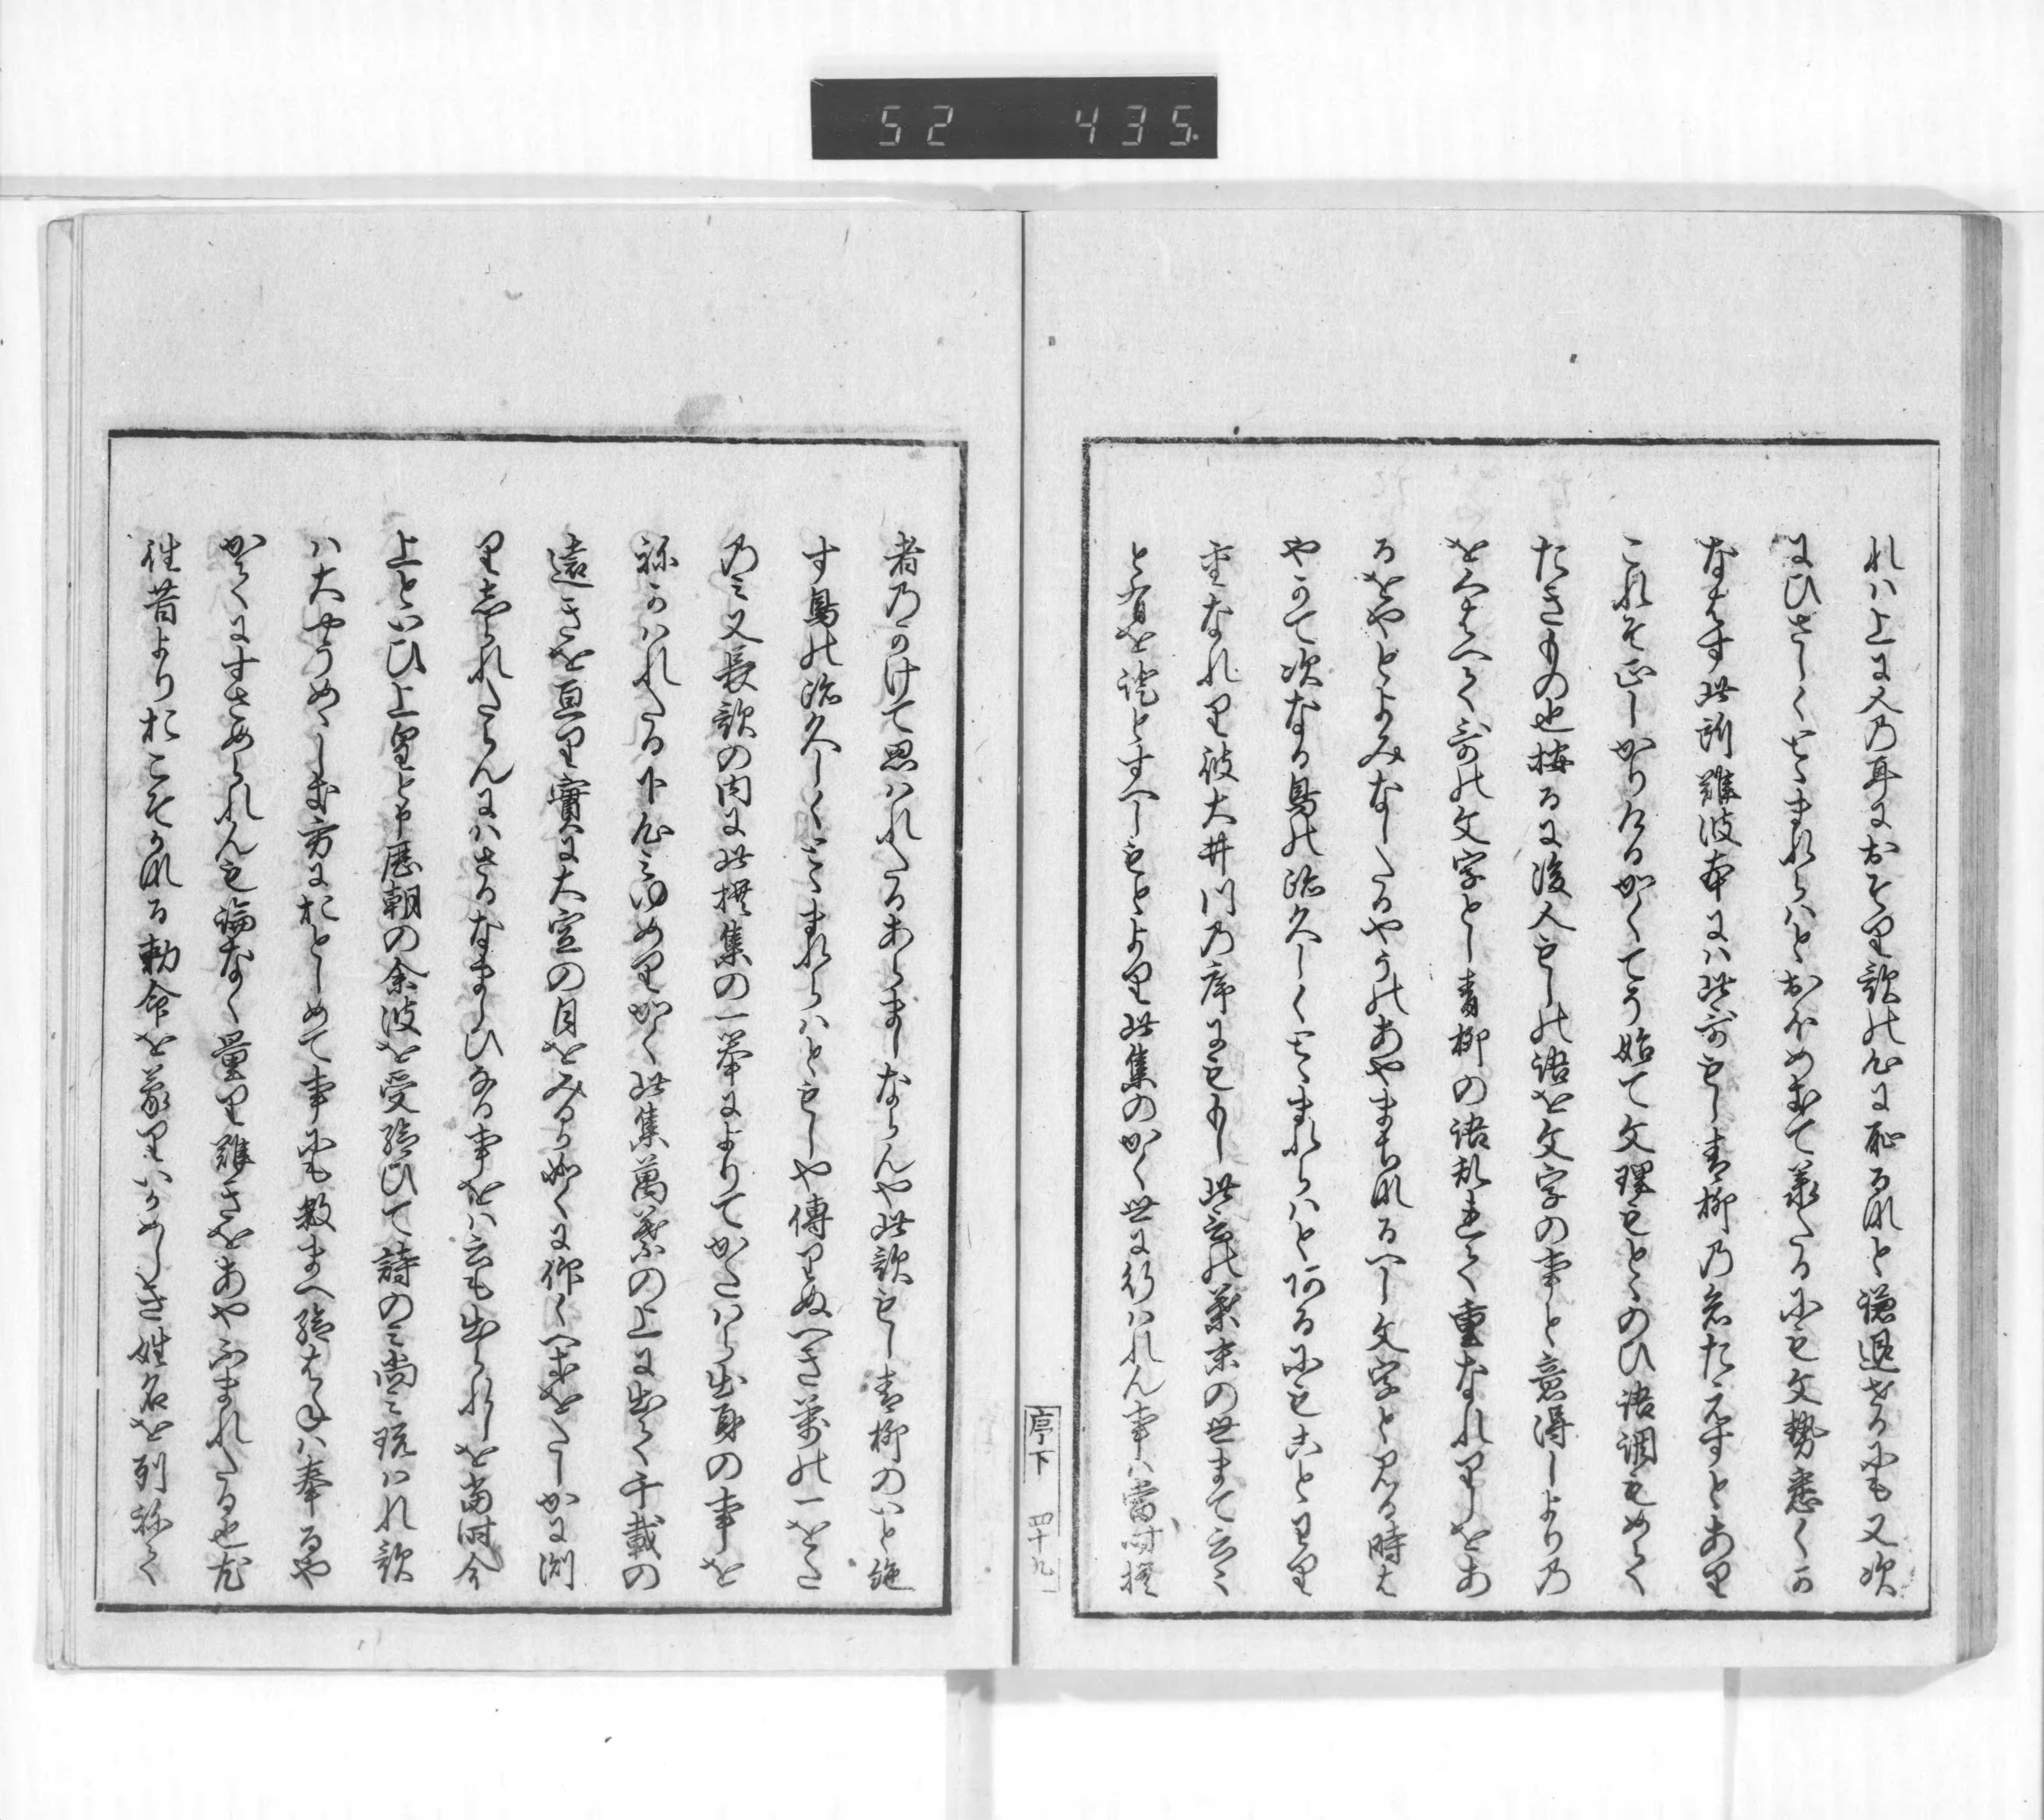 52 435.
れハ上に人乃耳におそり歌の心に恥る那と謙退せるにも又次
にひさしくとゝまれらハとおほめきて兼たるにも文勢悉くか
なはす此訓難波本には此哥もし青柳乃糸たえすとあり
これそ正しかりけるかくてそ始て文理もとゝのひ語調もめて
たきもの也按るに後人もしの語を文字の事と意得しより乃
を
哥の文字とし青柳の語
重なれりしをあ
るをやとよみなしたるやうのあやまち那るへし文字と見る時は
やかて次なる鳥の跡久しくとゝまれらハと
るにもことわり
重なれり彼大井川乃序にもナし此言の葉末の世まて云々
と有を證とすへしもとより此集のかく世に行ハれん事ハ當時撰
序下 四十九
者乃かけて思ハれたるあらましならんや此歌もし青柳のいと絶
す鳥の跡久しくとゝまれらハともしや傳りぬへき葉の一をた
乃ミ又長歌の内に此撰集の一挙によりてかたハら出身の事を
祢かハれたる下心ミゆめりかく此集萬葉の上に出て千載の
遠きを亘り實に大空の月をみるか如くに仰くへきをたしかに測
りしられたらんにハさるなましひなる事をハ言も出られしを當時今
上といひ上皇と申歴朝の余波を受給ひて詩のミ尚ミ玩ハれ歌
ハ大やうめゝしき方におとしめて事にも数まへ給はねハ奉るや
かくにすさめられんも論なく量り難きをあやふまれたる也尤
往昔よりおこそか那る勅命を蒙りいかめしき姓名を列祢て